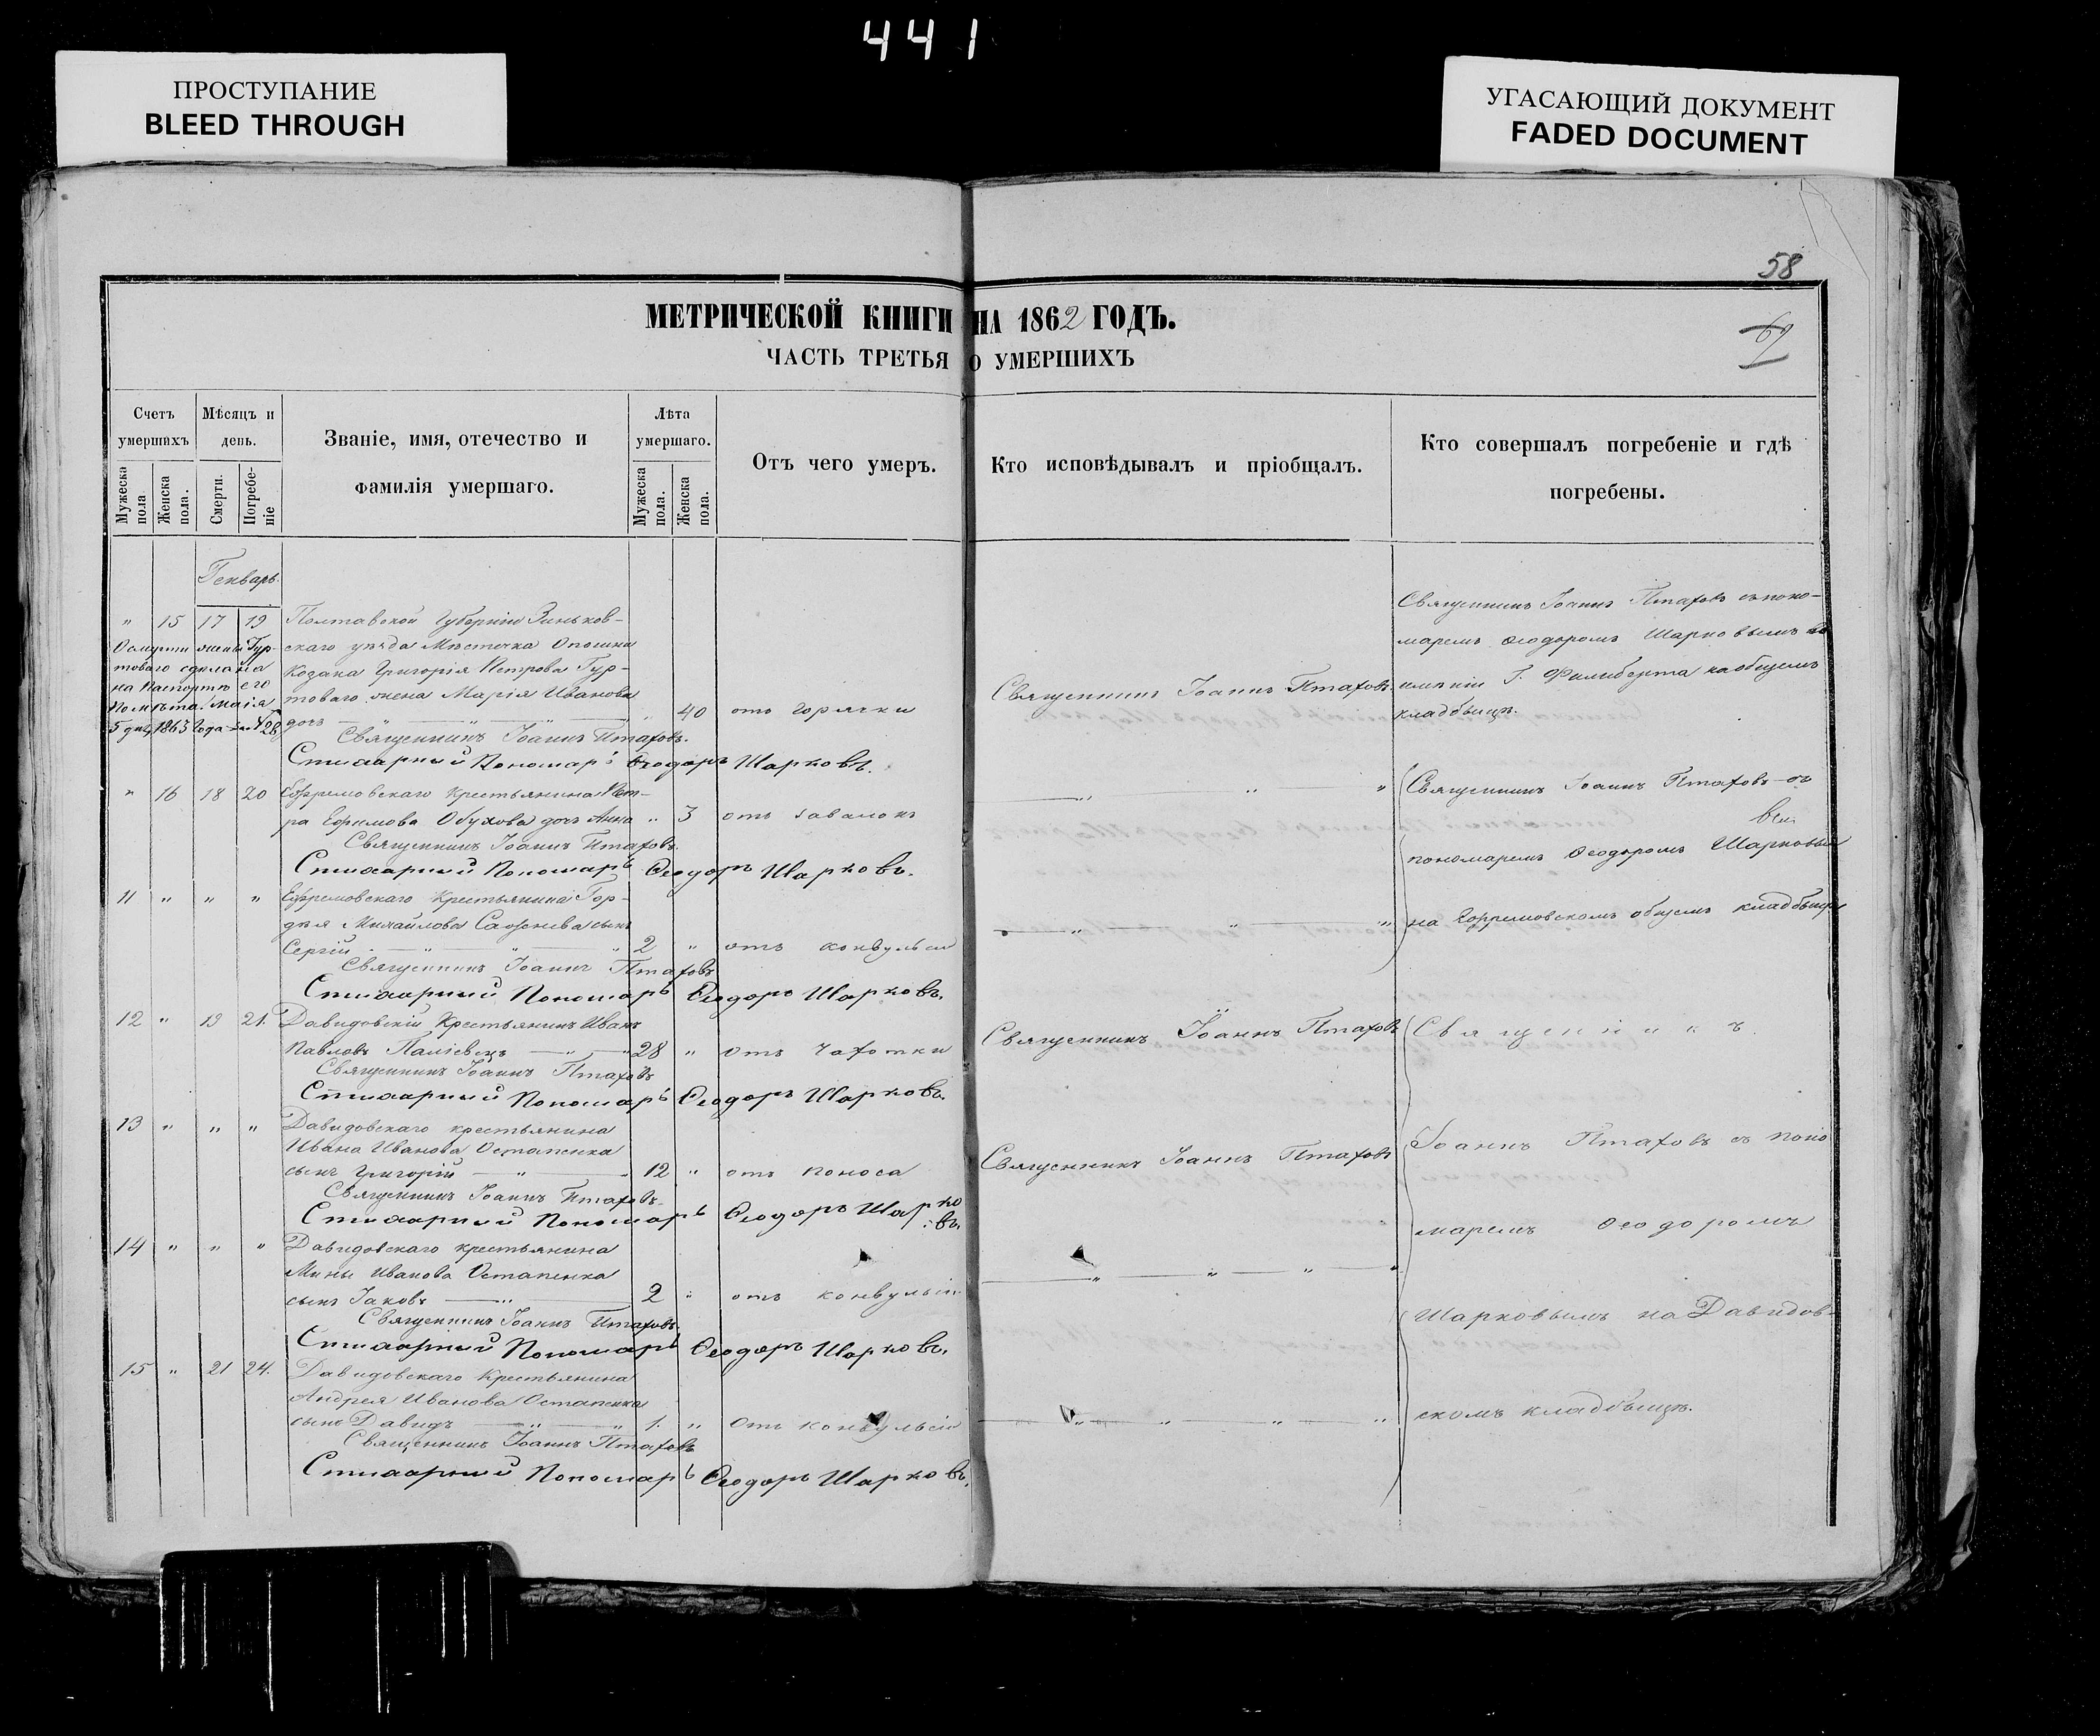 441
ПРОСТУПАНИЕ
BLEED THROUGH
УГАСАЮЩИЙ ДОКУМЕНТ
FADED DOCUMENT
58
МЕТРИЧЕСКОЙ КНИГИ НА 1862 ГОДЪ.
ЧАСТЬ ТРЕТЬЯ О УМЕРШИХЪ
Счетъ умершихъ
Мужеска пола
Женска пола.
Мѣсяцъ и день.
Смерти.
Погребеніе
Званіе, имя, отечество и
фамилія умершаго.
Лѣта умершаго.
Мужеска пола.
Женска пола.
Отъ чего умеръ.
Кто исповѣдывалъ и пріобщалъ.
Кто совершалъ погребеніе и гдѣ
погребены.
Генварь.
" 15 17 19 Полтавской Губерніи Зиньков-
скаго уѣзда Мѣстечка Опошни
Козака Григорія Петрова Гур-
товаго жена Марія Иванова
дочь " 40 отъ горячки
О смерти жены Гур-
товаго сделана
на Паспортѣ его
Помѣта. Маія
5 дня, 1863 года за № 28
Священникъ Іоаннъ Птаховъ.
Стихарный Пономарь Ѳеодоръ Шарковъ.
Священникъ Іоаннъ Птаховъ
Священникъ Іоаннъ Птаховъ съ поно-
маремъ Ѳеодоромъ Шарковымъ въ
имѣніи Г. Филиберта на общемъ
кладбищѣ.
" 16 18 20 Ефремовскаго Крестьянина Пет-
ра Ефимова Обухова дочь Анна " 3 отъ
Священникъ Іоаннъ Птаховъ.
Стихарный Пономарь Ѳеодоръ Шарковъ.
11 " " " Ефремовскаго Крестьянина Гор-
дѣя Михайлова сынъ
Сергій 2 " отъ конвульсіи
Священникъ Іоаннъ Птаховъ
Стихарный Пономарь Ѳеодоръ Шарковъ.
Священникъ Іоаннъ Птаховъ съ
пономаремъ Ѳеодоромъ Шарковымъ
на Ефремовскомъ общемъ кладбищѣ
12 " 19 21. Давидовскій Крестьянинъ Иванъ
Павловъ 28 " отъ чахотки
Священникъ Іоаннъ Птаховъ
Стихарный Пономарь Ѳеодоръ Шарковъ.
Священникъ Іоаннъ Птаховъ
13 " " " Давидовскаго крестьянина
Ивана Иванова Остапенка
сынъ Григорій 12 " отъ поноса
Священникъ Іоаннъ Птаховъ
Стихарный Пономарь Ѳеодоръ Шарко
въ.
Священникъ Іоаннъ Птаховъ
14 " " " Давидовскаго крестьянина
Мины Иванова Остапенка
сынъ Іаковъ 2 " отъ конвульсіи
Священникъ Іоаннъ Птаховъ
Стихарный Пономарь Ѳеодоръ Шарковъ.
15 " 21 24. Давидовскаго Крестьянина
Андрея Иванова Остапенка
сынъ Давидъ 1. " отъ конвульсіи
Священникъ Іоаннъ Птаховъ
Стихарный Пономарь Ѳеодоръ Шарковъ.
Священникъ
Іоаннъ Птаховъ съ поно
маремъ Ѳеодоромъ
Шарковымъ на Давидов-
скомъ кладбищѣ.